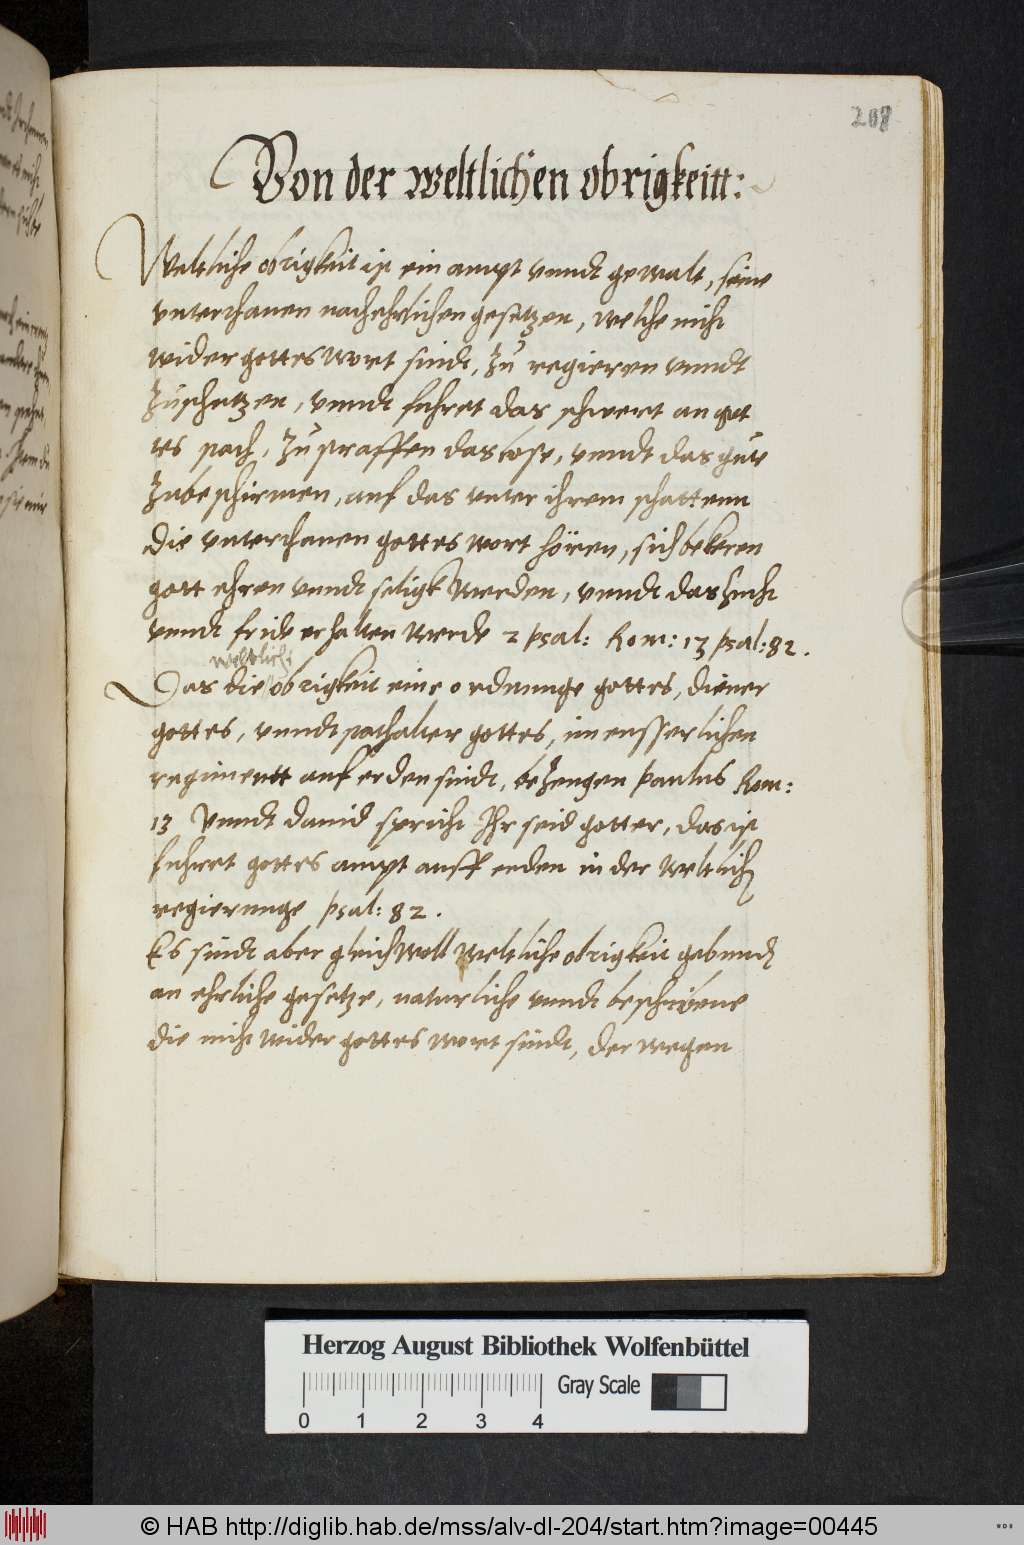 208
Von der weltlichen obrigkeitt:
Weltliche obrigkeit ist ein ampt vnndt gewalt, seine
vnterthanen nach ehrlichen gesetzen, welche nicht
wider gottes wort sindt, zu regieren vnndt
zuschutzen, vnndt fuhret das schwert an got
tes stadt, zu straffen das bose, vnndt das gute
zubeschirmen, auf das vnter ihrem schattenn
die vnterthanen gottes wort hören, sich bekeren
gott ehren vnndt seligk werden, vnndt das zucht
vnndt fride erhalten werde 2 psal: Rom: 13 psal: 82.
weltliche
Das die obrigkeit eine ordnunge gottes, diener
gottes, vnndt stathalter gottes, im eusserlichen
regimentt auf erden sindt, bezeugen paulus Rom:
13 Vnndt dauid spricht Ihr seid gotter, das ist
fuhret gottes ampt auff erden in der weltlich
regierunge psal: 82.
Es sindt aber gleichwoll weltliche obrigkeit gebund
an ehrliche gesetze, naturliche vnndt beschribene
die nicht wider gottes wort sindt, der wegen
Herzog August Bibliothek Wolfenbüttel
Gray Scale
0 1 2 3 4
© HAB http://diglib.hab.de/mss/alv-dl-204/start.htm?image=00445